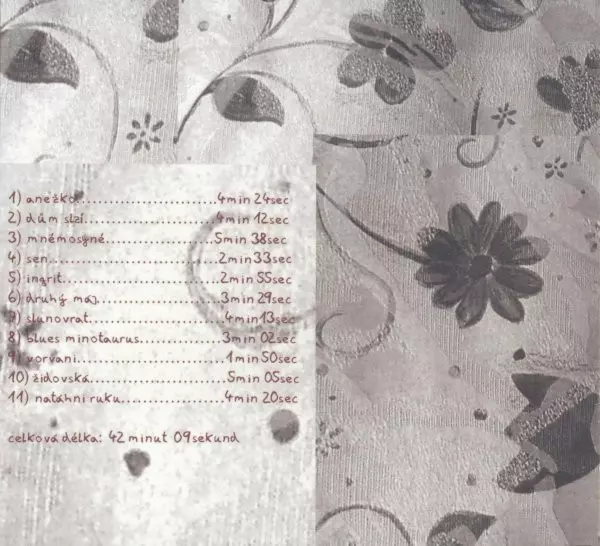 1) anežko..........................4min 24sec
2) dům slzí........................4min 12sec
3) mnémosýné....................5min 38sec
4) sen................................2min33sec
5) ingrit.............................2min 55sec
6) druhý máj.......................3min 29sec
7) slunovrat........................4min13sec
8) blues minotaurus.............3min 02sec
9) vorvani...........................1min 50sec
10) židovská.......................5min 05sec
11) natáhni ruku.................4min 20sec
celková délka: 42 minut 09sekund